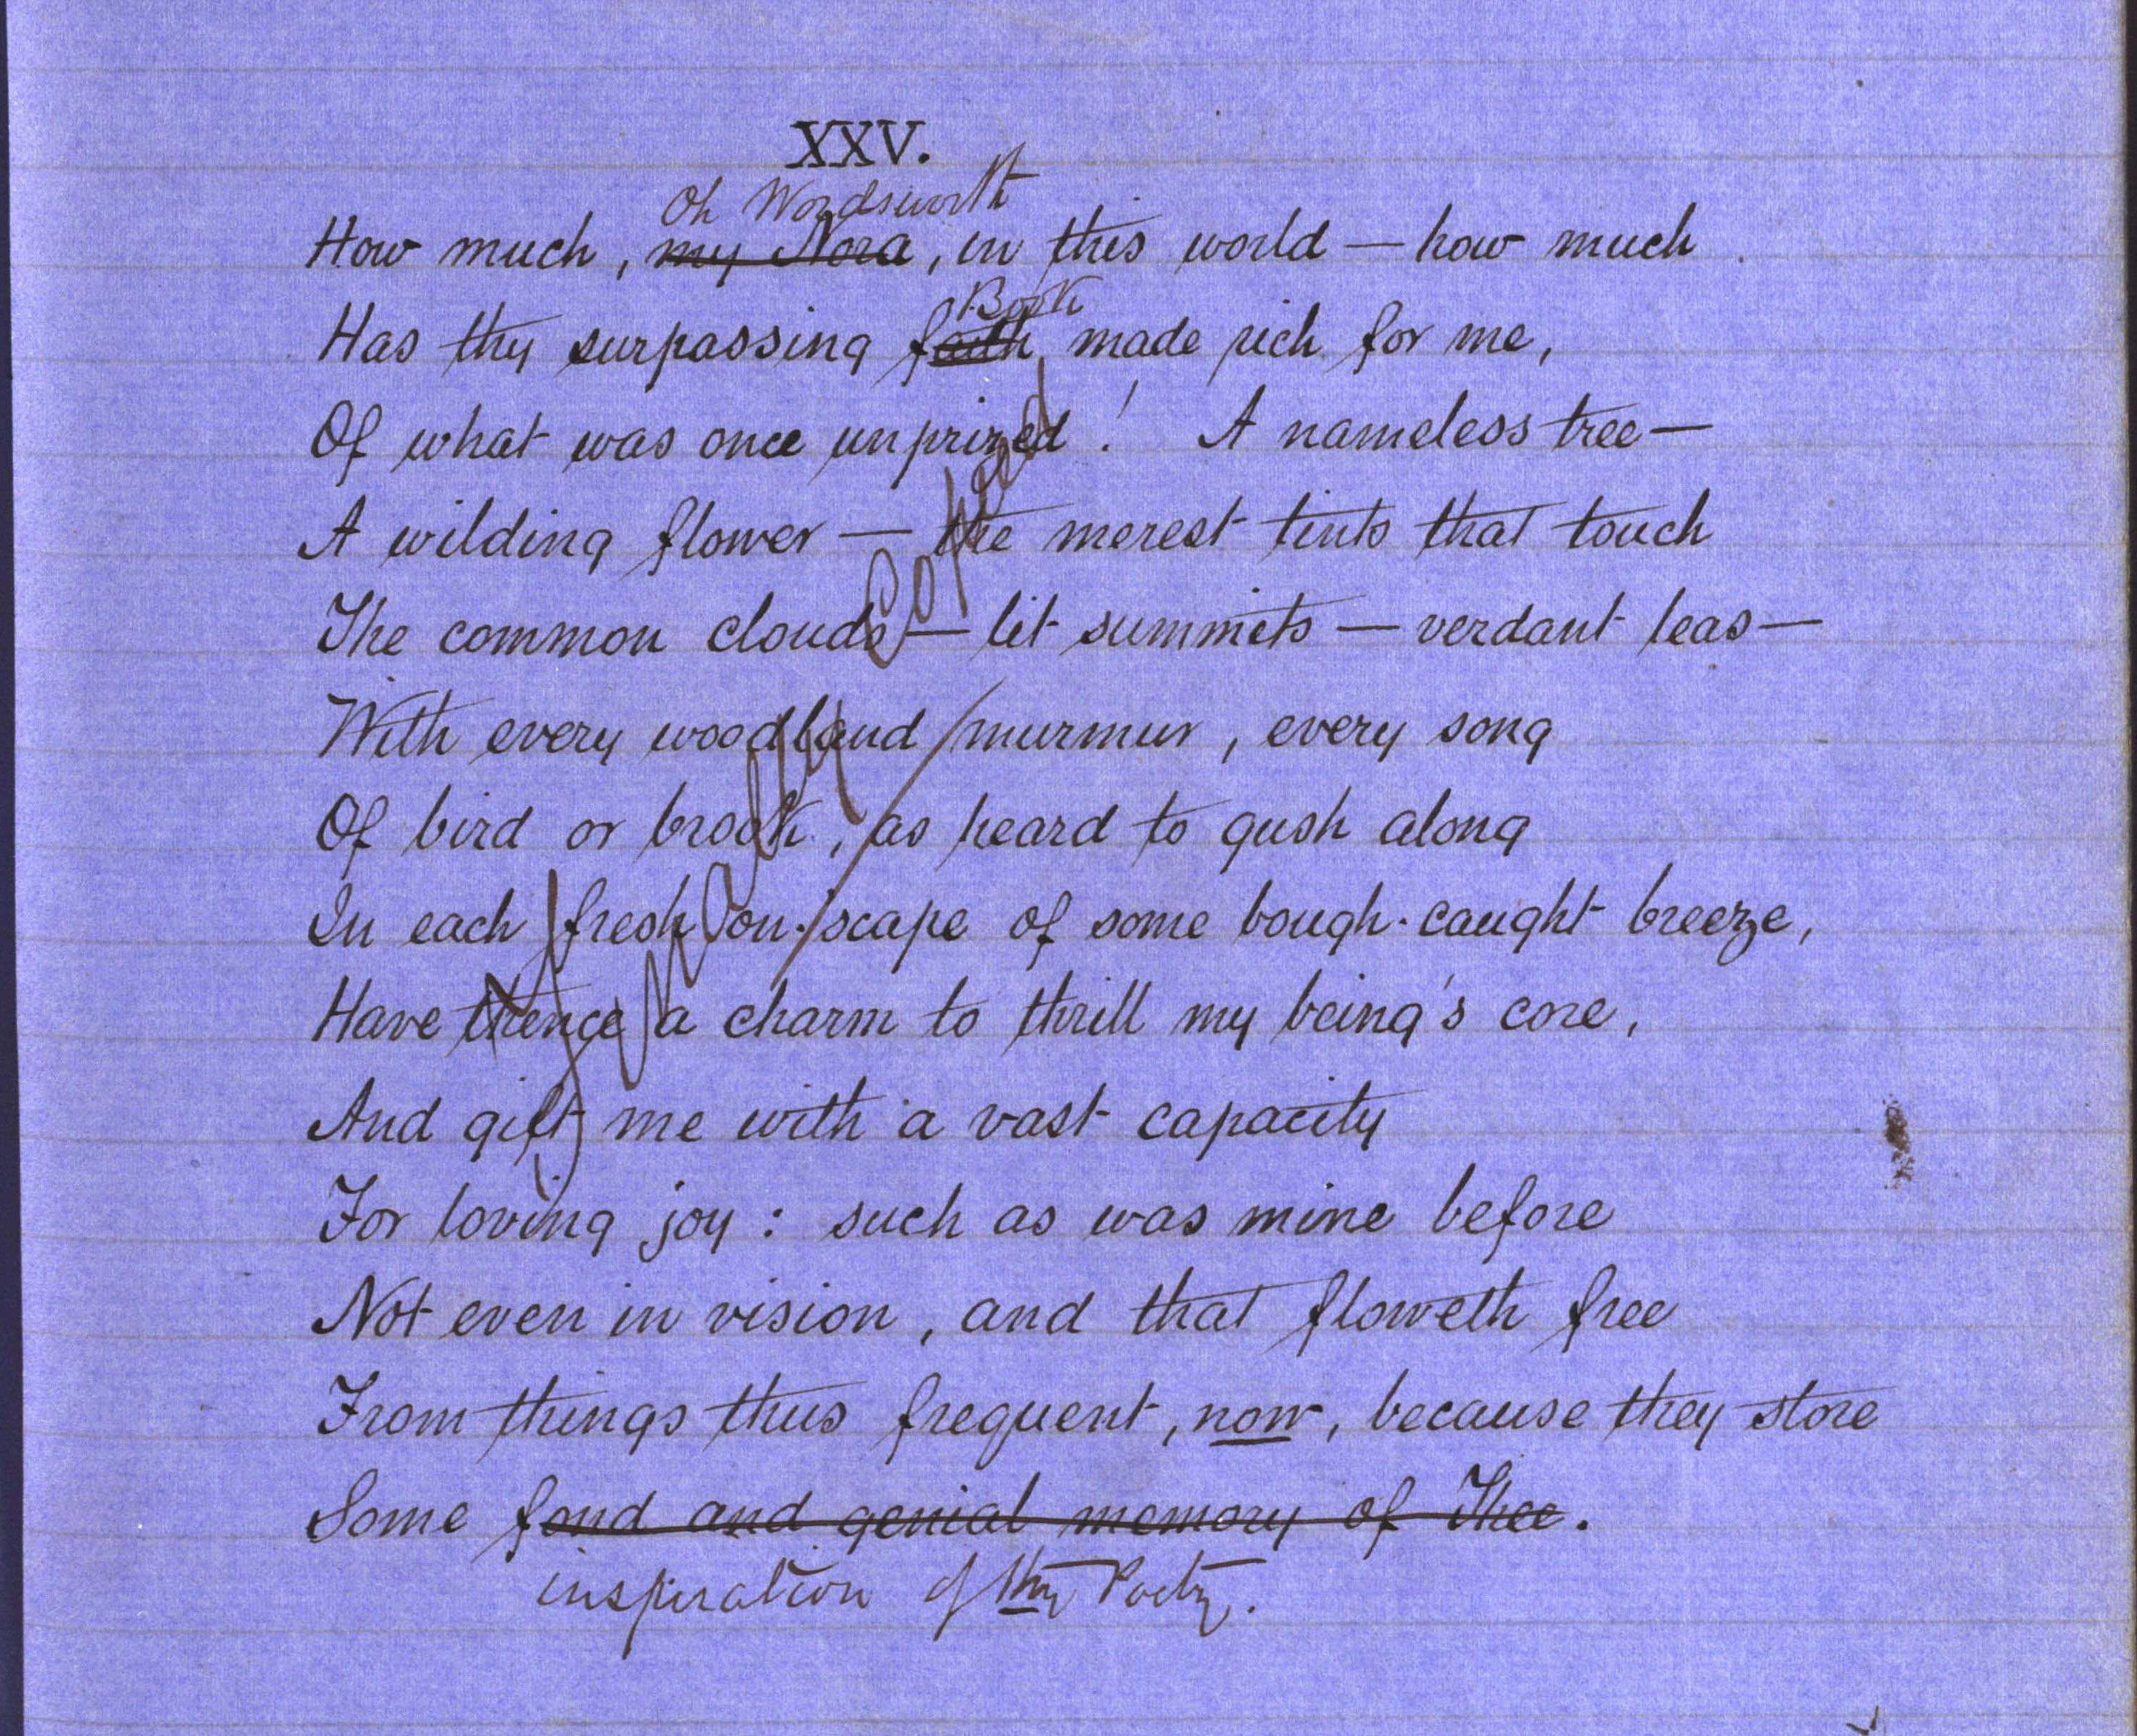 XXV.
Oh Wordsworth
How much, my Nora, in this world — how much
Book
Has thy surpassing faith made rich for me,
Of what was once unprized! A nameless tree —
A wilding flower — the merest tints that touch
The common clouds — lit summits — verdant leas —
With every woodland murmur, every song
Of bird or brook, as heard to gush along
In each fresh on-scape of some bough-caught breeze,
Have thence a charm to thrill my being's core,
And gift me with a vast capacity
For loving joy: such as was mine before
Not even in vision, and that floweth free
From things thus frequent, now, because they store
Some fond and genial memory of Thee.
inspiration of thy Poetry.
Copied